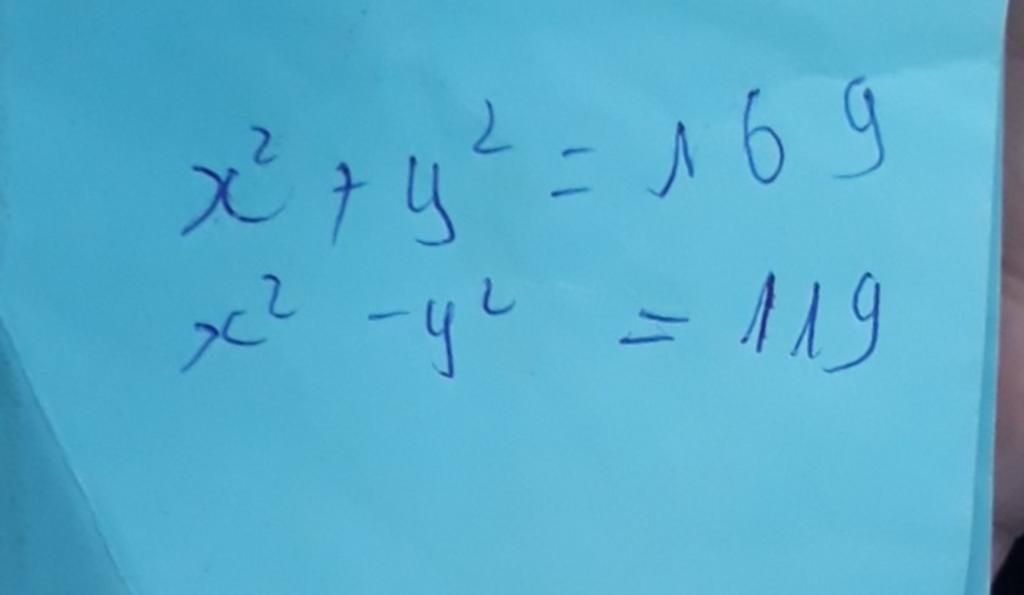 x² + y² = 169
x² - y² = 119